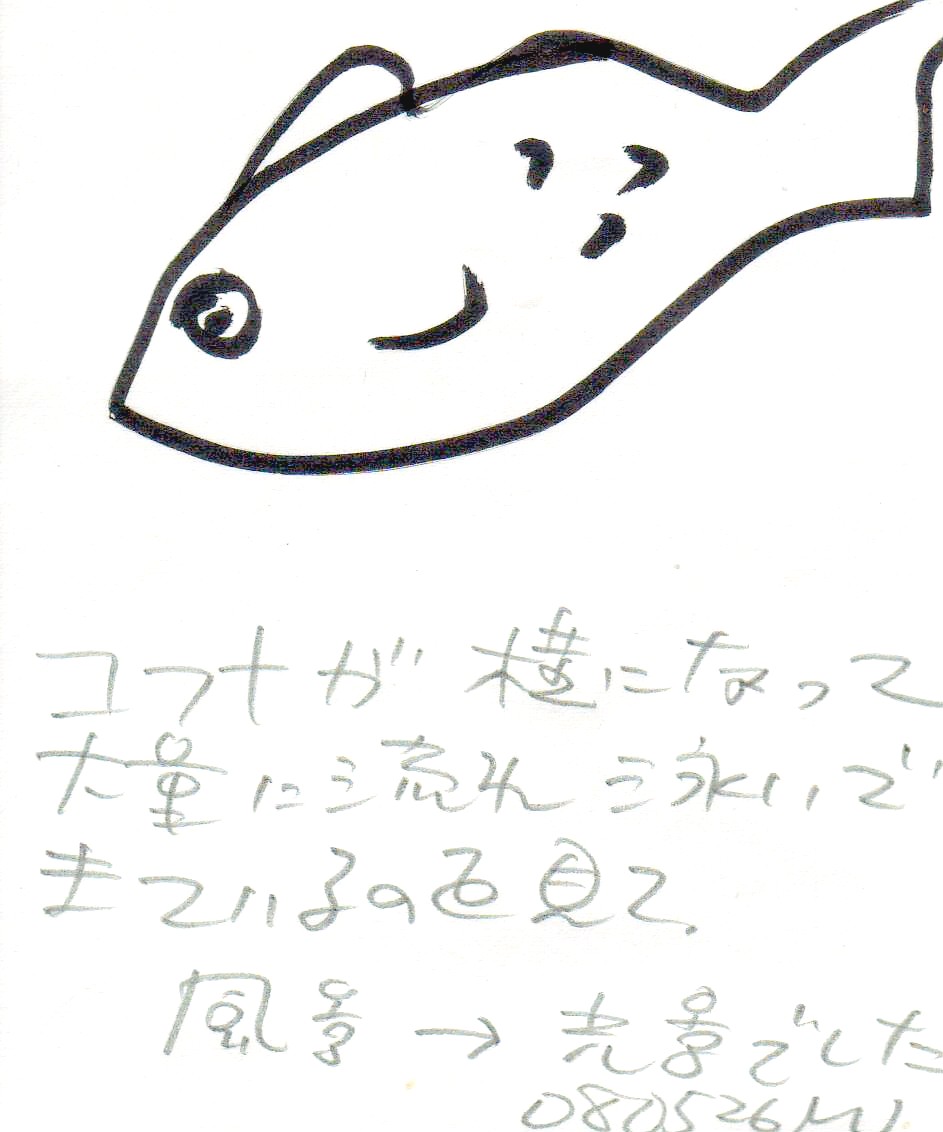 コフナが横になって
大量に流れ泳いで
きているのを見て.
風景→光景でした
080526